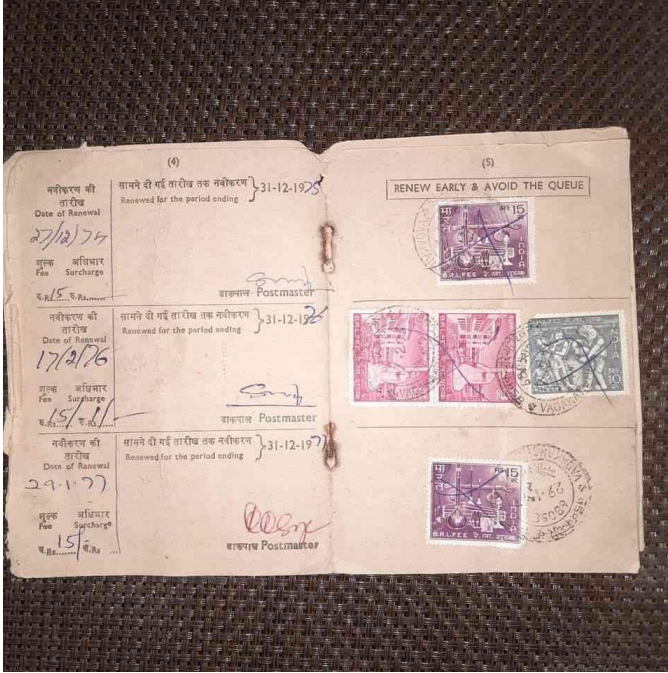 (4)
नवीकरण की
तारीख
Date of Renewal
27/12/74
सामने दी गई तारीख तक नवीकरण
Renewed for the period ending
}31-12-1975
शुल्क अधिभार
Fee Surcharge
रु.Rs.15 रु.Rs.......
डाकपाल Postmaster
नवीकरण की
तारीख
Date of Renewal
17/2/76
सामने दी गई तारीख तक नवीकरण
Renewed for the period ending
}31-12-1976
शुल्क अधिभार
Fee Surcharge
रु.Rs.15/- रु.Rs.1/-
डाकपाल Postmaster
नवीकरण की
तारीख
Date of Renewal
29.1.77
सामने दी गई तारीख तक नवीकरण
Renewed for the period ending
}31-12-1977
शुल्क अधिभार
Fee Surcharge
रु.Rs.15/- रु.Rs.......
डाकपाल Postmaster
(5)
RENEW EARLY & AVOID THE QUEUE
भारत
15
INDIA
B.R.L.FEE रे.ला. शुल्क
10
भारत
15
INDIA
B.R.L.FEE रे.ला. शुल्क